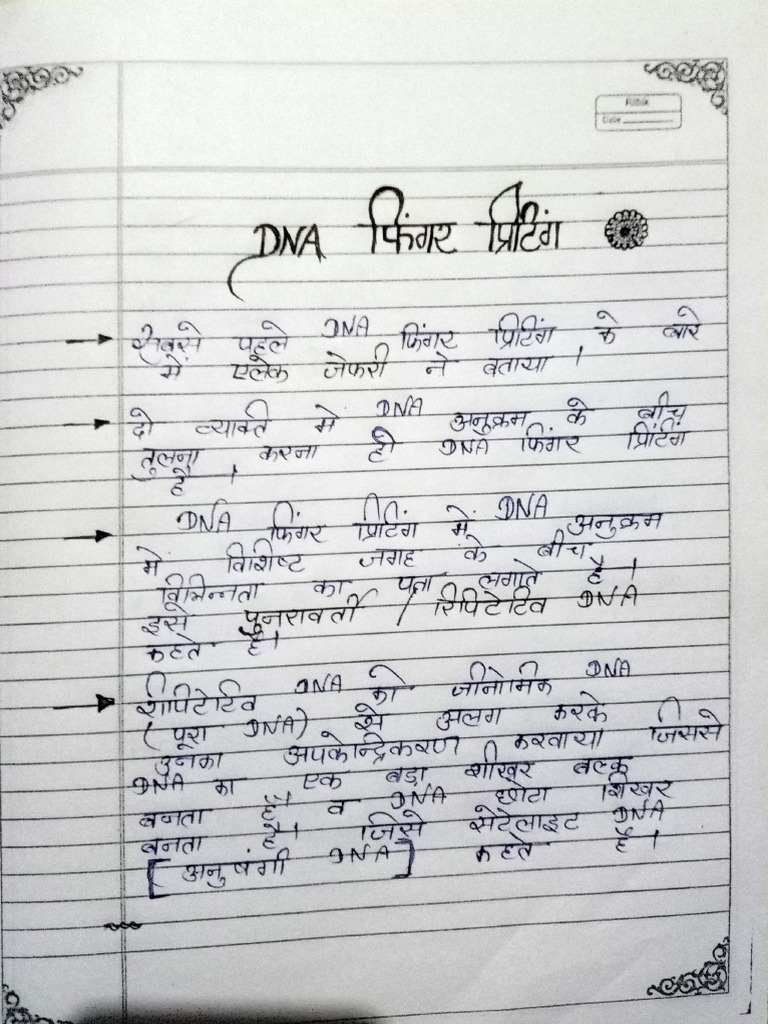 Date
DNA फिंगर प्रिटिंग
सबसे पहले DNA फिंगर प्रिटिंग के बारे
में एलेक जेफरी ने बताया ।
दो व्यक्ति में DNA अनुक्रम के बीच
तुलना करना ही DNA फिंगर प्रिटिंग
है ।
DNA फिंगर प्रिटिंग में DNA अनुक्रम
में विशिष्ट जगह के बीच
विभिन्नता का पता लगाते है ।
इसे पुनरावर्ती / रिपिटेटिव DNA
कहते है।
रीपिटेटिव DNA को जीनोमिक DNA
(पूरा DNA) से अलग करके
उनका अपकेन्द्रिकरण करवाया जिससे
DNA का एक बड़ा शीखर बल्क
बनता है। व DNA छोटा शिखर
बनता है। जिसे सेटेलाइट DNA
[अनुषंगी DNA] कहते है ।